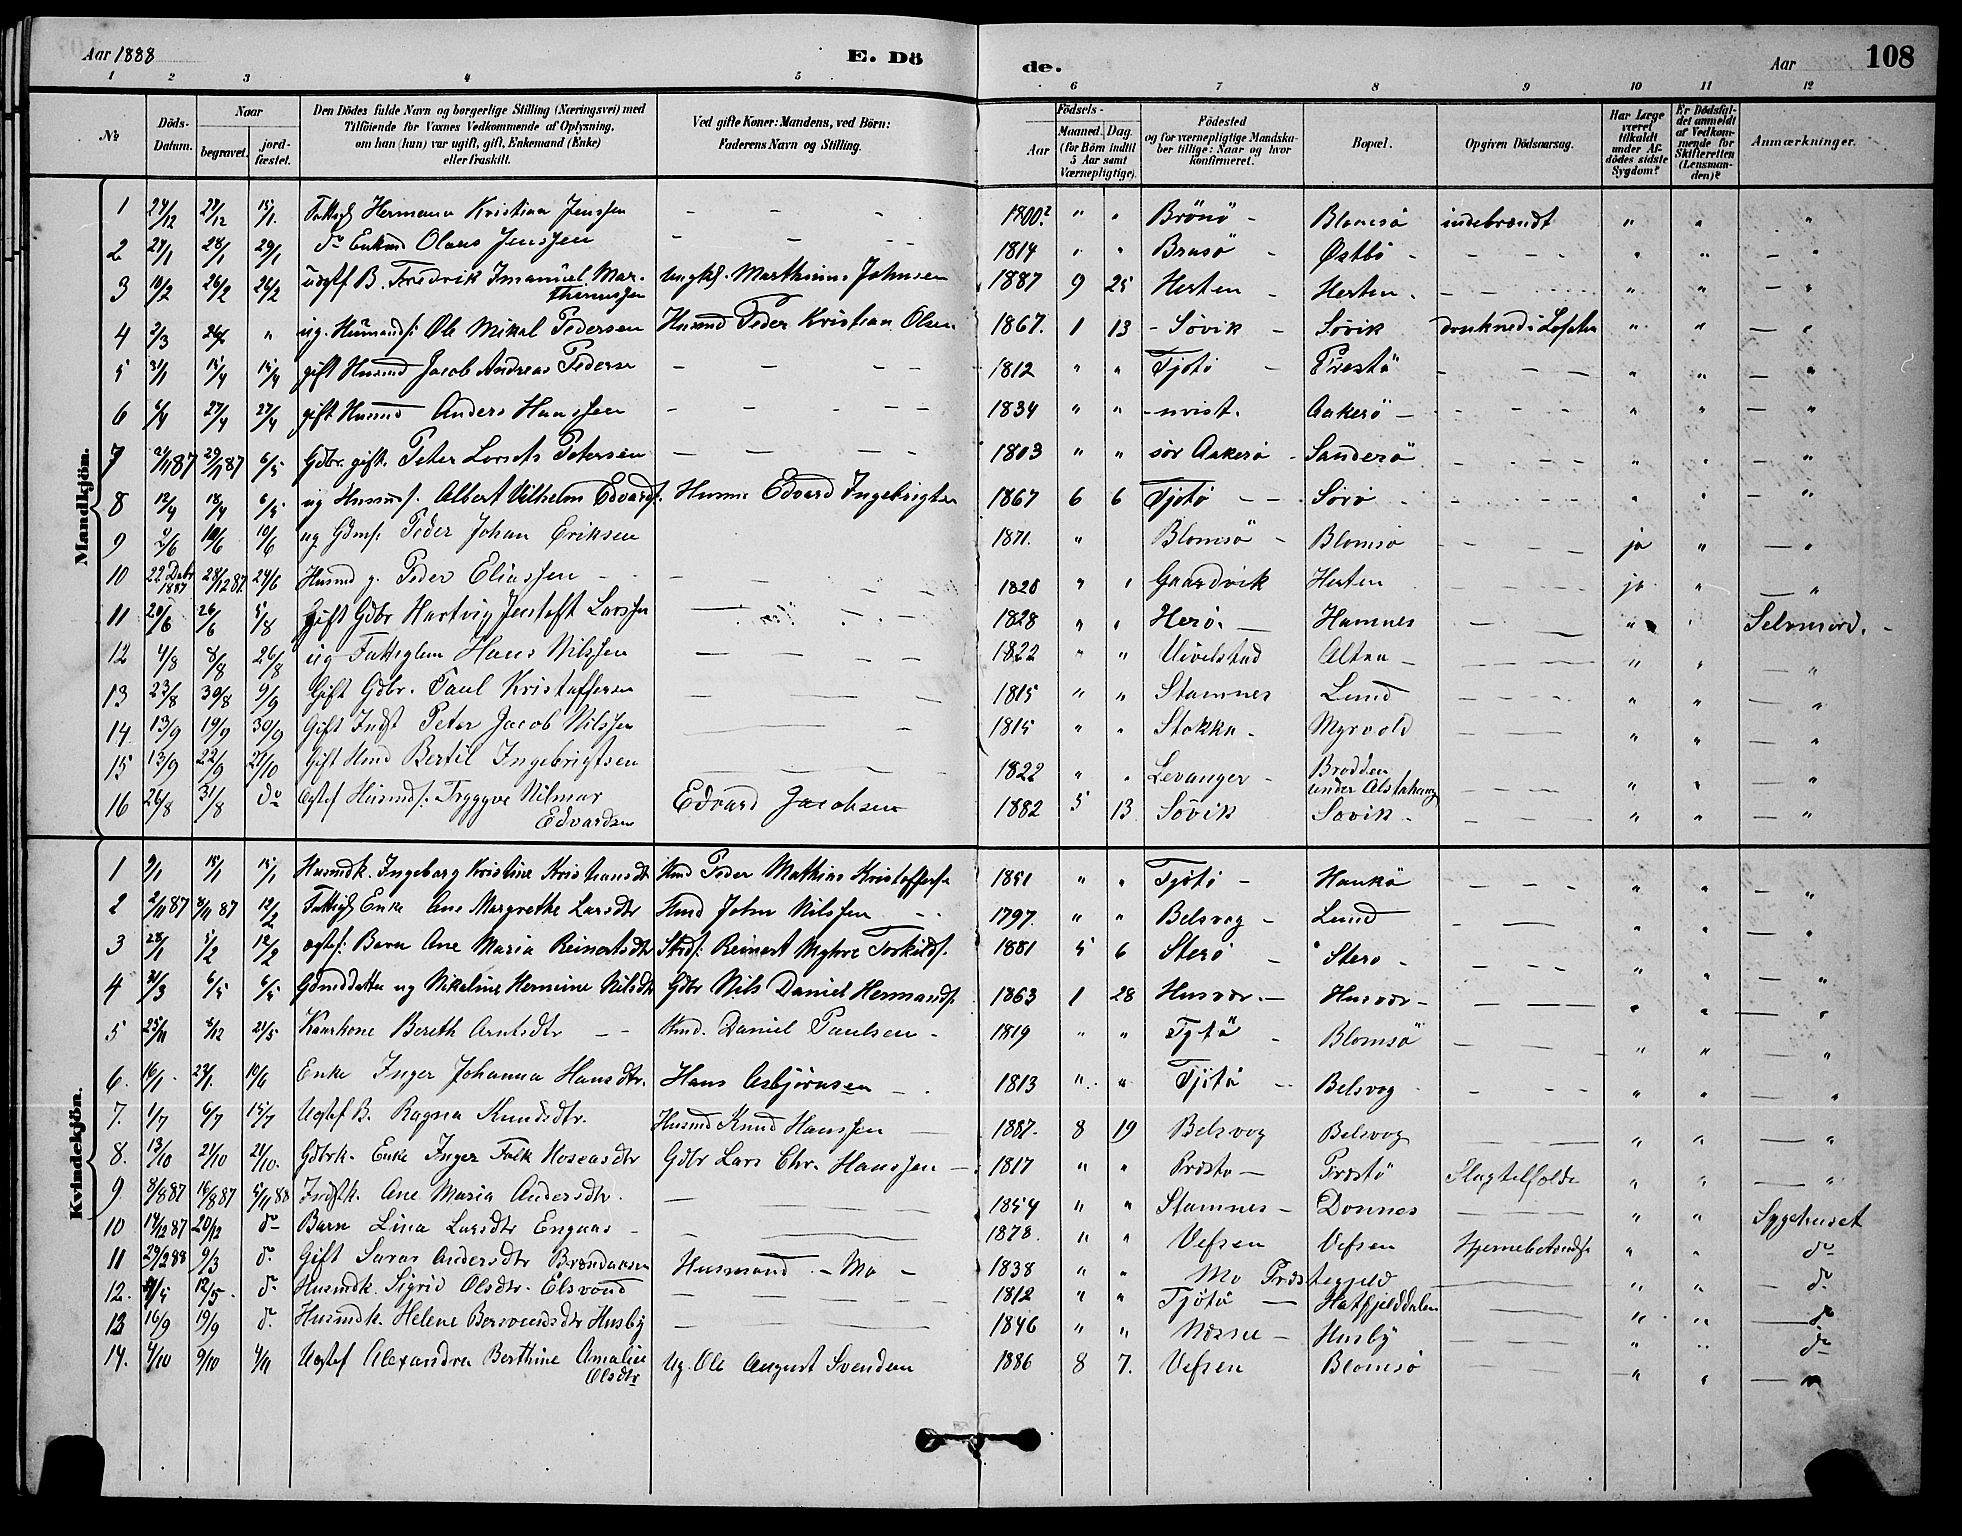 Aar 1888
E. Dö
de.
Aar
108
1 2 3 4 5 6 7 8 9 10 11 12
No
Döds-Datum.
Naar
begravet.
jord-fæstet.
Den Dödes fulde Navn og borgerlige Stilling (Næringsvei) med
Tilföiende for Voxnes Vedkommende af Oplysning,
om han (hun) var ugift, gift, Enkemand (Enke)
eller fraskilt.
Ved gifte Koner: Mandens, ved Börn:
Faderens Navn og Stilling.
Födsels-
Aar
Maaned. Dag.
(for Börn indtil
5 Aar samt
Værnepligtige).
Födested
og for værnepligtige Mandska-
ber tillige: Naar og hvor
konfirmeret.
Bopæl.
Opgiven Dödsaarsag.
Har Læge
været
tilkaldt
under Af-
dödes sidste
Sygdom?
Er Dödsfal-
det anmeldt
af Vedkom-
mende for
Skifteretten
(Lensman-
den)?
Anmærkninger.
Mandkjön.
1 24/12 29/12 15/1. Hermann Kristian Jenssen - - - 1800? " " Brönö - Blomsö indebrændt " " "
2 27/1 28/1 29/1 do Enkmd Olaus Jenssen - - - - 1814 " " Brasö - Østbö - - - " " - "
3 10/2 26/2 26/2 uægtef B. Fredrik Imanuel Mar-
thinussen Ungkl. Marthinus Johnsen 1887 9 25 Herten - Herten - - - - " " - "
4 2/3 26/2 " ug. Husmands: Ole Mikal Pedersen Husmd Peder Kristian Olsen 1867. 1 13 - Sövik - Sövik druknedi Lofoten " " - "
5 3/1 15/4 15/4 gift Husmd Jacob Andreas Pedersen - - - - 1812 " " Tjötö - Prestö - - - " " - "
6 6/4 27/4 27/4 gift Husmd Anders Hanssen - - - - 1834 " " - uvist. Aakerö - - - - " " - "
7 /1187 29/1187 6/5 Gdbr. gift. Peter Lorents Petersen - - - - 1803 " " sör Aakerö - Sanderö - - - " " - "
8 12/4 18/4 6/5 ug Husmds. Albert Vilhelm Edvards. Husmd Edvard Ingebrigtsen 1867 6 6 Tjötö - - - - - " " - "
9 2/6 10/6 10/6 ug. Gdms: Peder Johan Eriksen 1871. " Blomsö - Blomsö - - - ja " - "
10 22 Decbr 1887 28/1287. 24/6 Husmd g. Peder Eliassen - - - - - 1820 " " Gaardvik Herten - - - ja " - "
11 20/6 26/6 5/8 Gift Gdbr Hartvig Jentoft Larssen - - - 1828 " " Herö. - Hamnes - - - " " Selvmord. -
12 4/8 8/8 26/8 ug Fattiglem Hans Nilssen - - - - 1822 " " Altra - - - - " " - "
13 23/8 30/8 9/9 Gift Gdbr. Paul Kristoffersen - - - - 1815 " " Stamnes Lund - - - " " - "
14. 13/9 19/9 30/9 Gift Indst Peter Jacob Nilssen - - 1815 " " Stokka - Myrvold - - - " " - "
15 13/9 22/9 /10 Gift Hmd Bertil Ingebrigtsen - - - - 1822 " " Levanger - Brodden
under Alstahaug - - - " " - "
16 26/8 31/8 do Ægtef Husmds: Tryggve Hilmar
Edvardsen Edvard Jacobsen 1882 5 13 Sövik Sövik - - - - " " - "
Kvindekjön.
1 9/1 15/1 15/1 Husmdk. Ingeborg Kristine Kristiansdtr Hmd Peder Mathias Kristoffersen 1851 " " Tjötö - Haukö - - - " " - "
2 2/1187 8/1187 12/2 Enke Ane Margrethe Larsdtr Hmd John Nilssen - - 1797. " " Belsvog - Lund - - " " - "
3 28/1 5/2 12/2 ægtef: Barn Ane Maria Reinertsdtr Reinert Myhre Torkilds. 1881 5 6 Sterö - Sterö - - - - " " - "
4 31/3 6/5 6/5 Gdmddatter ug Nikoline Hermine Nilsdtr Gdbr Nils Daniel Hermands. 1863 1 28 Husvær. - Husvær - - - - " " - "
5 25/11 4/12 21/5 Kaarkone Bereth Arntsdtr - - Hmd. Daniel Paulsen - 1819 " " Tjötö - Blomsö - - - " " - "
6. 16/1 23/1. 10/6 Enke Inger Johanna Hansdtr. Hans Asbjörnsen - 1813 " " Tjötö - Belsvog - - - " " - "
7. 1/7 6/7 15/7 Uægtef B. Ragna Knudsdtr. Husmd Knud Hanssen - 1887. 8 19 Belsvog Belsvog - - - " " - "
8. 13/10 21/10 21/10. Gdbrk. Enke Inger Falk Hoseasdtr Gdbr Lars Chr. Hanssen - 1817 " " Præstö - Præstö Slagtilfælde " " - "
9 8/887 16/887 5/1188 Indstk. Ane Maria Andersdtr. - - - 1854 " " Stamnes - Donnes - - - " "
10 14/1287 20/12 do Barn Lina Larsdtr Engaas - - - 1878. " " Vefsen Vefsen Hjernebetændse " " Sygehuset
11 29/288 9/3 do. Gift Saras Andersdtr Husmand - Mo - 1838 " " Mo Præstegjeld - " " do
12. 4/5 12/5. do. Husmdk. Sigrid Olsdtr. Elsvond - - - 1812 " " Tjötö - Hatfjelddalen - " " - do
13 16/9 19/9 do. Husmdk. Helene Bersvendsdtr Husby - - - 1846 " " Nesne - Husby - " " do
14. 4/10 9/10 4/11 Uægtef Alexandra Berthine Amalie
Olsdtr Ug. Ole August Svendsen 1886 8 7. Vefsen Blomsö - " " - "